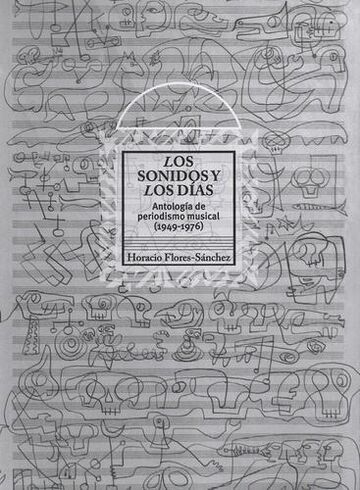 LOS
SONIDOS Y
LOS DÍAS
Antología de
periodismo musical
(1949-1976)
Horacio Flores-Sánchez